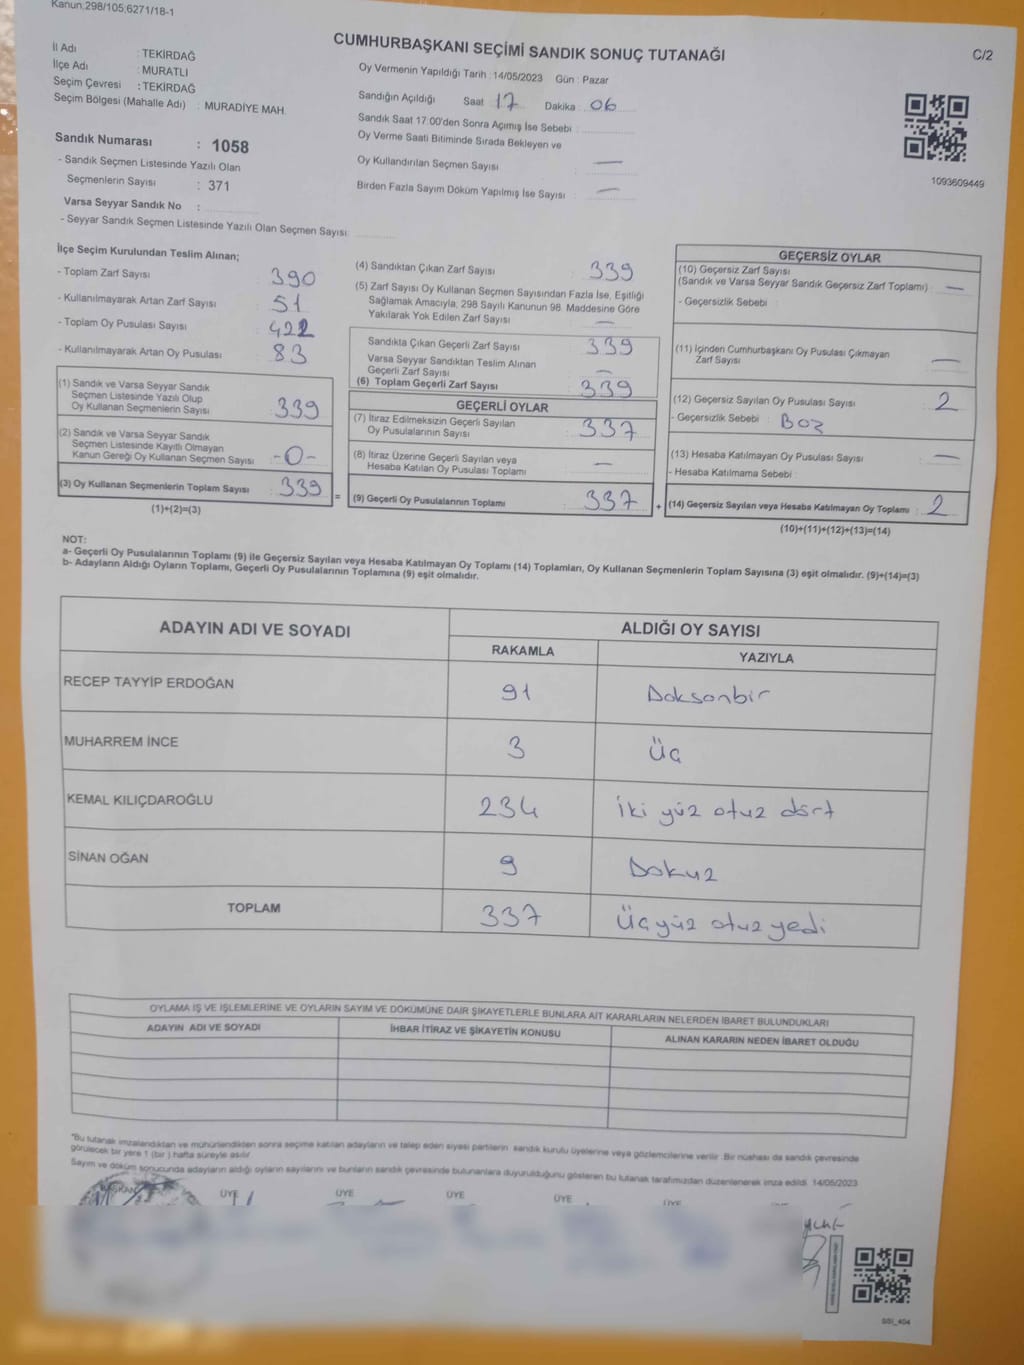 Kanun:298/105;6271/18-1
CUMHURBAŞKANI SEÇİMİ SANDIK SONUÇ TUTANAĞI
C/2
İl Adı : TEKİRDAĞ
İlçe Adı : MURATLI
Seçim Çevresi : TEKİRDAĞ
Seçim Bölgesi (Mahalle Adı) : MURADİYE MAH.
Sandık Numarası : 1058
- Sandık Seçmen Listesinde Yazılı Olan
Seçmenlerin Sayısı : 371
Varsa Seyyar Sandık No :
- Seyyar Sandık Seçmen Listesinde Yazılı Olan Seçmen Sayısı:
Oy Vermenin Yapıldığı Tarih : 14/05/2023 Gün : Pazar
Sandığın Açıldığı Saat 17 Dakika : 06
Sandık Saat 17:00'den Sonra Açımış İse Sebebi :
Oy Verme Saati Bitiminde Sırada Bekleyen ve
Oy Kullandırılan Seçmen Sayısı : —
Birden Fazla Sayım Döküm Yapılmış İse Sayısı : —
1093609449
İlçe Seçim Kurulundan Teslim Alınan;
- Toplam Zarf Sayısı : 390
- Kullanılmayarak Artan Zarf Sayısı : 51
- Toplam Oy Pusulası Sayısı : 422
- Kullanılmayarak Artan Oy Pusulası : 83
(1) Sandık ve Varsa Seyyar Sandık
Seçmen Listesinde Yazılı Olup
Oy Kullanan Seçmenlerin Sayısı : 339
(2) Sandık ve Varsa Seyyar Sandık
Seçmen Listesinde Kayıtlı Olmayan
Kanun Gereği Oy Kullanan Seçmen Sayısı : -0-
(3) Oy Kullanan Seçmenlerin Toplam Sayısı : 339
(1)+(2)=(3)
=
(4) Sandıktan Çıkan Zarf Sayısı : 339
(5) Zarf Sayısı Oy Kullanan Seçmen Sayısından Fazla İse, Eşitliği
Sağlamak Amacıyla, 298 Sayılı Kanunun 98. Maddesine Göre
Yakılarak Yok Edilen Zarf Sayısı : —
Sandıkta Çıkan Geçerli Zarf Sayısı : 339
Varsa Seyyar Sandıktan Teslim Alınan
Geçerli Zarf Sayısı : —
(6) Toplam Geçerli Zarf Sayısı : 339
GEÇERLİ OYLAR
(7) İtiraz Edilmeksizin Geçerli Sayılan
Oy Pusulalarının Sayısı : 337
(8) İtiraz Üzerine Geçerli Sayılan veya
Hesaba Katılan Oy Pusulası Toplamı : —
(9) Geçerli Oy Pusulalarının Toplamı : 337
+
GEÇERSİZ OYLAR
(10) Geçersiz Zarf Sayısı
(Sandık ve Varsa Seyyar Sandık Geçersiz Zarf Toplamı) : —
- Geçersizlik Sebebi :
(11) İçinden Cumhurbaşkanı Oy Pusulası Çıkmayan
Zarf Sayısı : —
(12) Geçersiz Sayılan Oy Pusulası Sayısı : 2
- Geçersizlik Sebebi :
(13) Hesaba Katılmayan Oy Pusulası Sayısı : —
- Hesaba Katılmama Sebebi :
(14) Geçersiz Sayılan veya Hesaba Katılmayan Oy Toplamı : 2
(10)+(11)+(12)+(13)=(14)
NOT:
a- Geçerli Oy Pusulalarının Toplamı (9) ile Geçersiz Sayılan veya Hesaba Katılmayan Oy Toplamı (14) Toplamları, Oy Kullanan Seçmenlerin Toplam Sayısına (3) eşit olmalıdır. (9)+(14)=(3)
b- Adayların Aldığı Oyların Toplamı, Geçerli Oy Pusulalarının Toplamına (9) eşit olmalıdır.
ADAYIN ADI VE SOYADI
ALDIĞI OY SAYISI
RAKAMLA YAZIYLA
RECEP TAYYİP ERDOĞAN 91 Doksanbir
MUHARREM İNCE 3 Üç
KEMAL KILIÇDAROĞLU 234 İki yüz otuz dört
SİNAN OĞAN 9 Dokuz
TOPLAM 337 Üçyüz otuz yedi
OYLAMA İŞ VE İŞLEMLERİNE VE OYLARIN SAYIM VE DÖKÜMÜNE DAİR ŞİKAYETLERLE BUNLARA AİT KARARLARIN NELERDEN İBARET BULUNDUKLARI
ADAYIN ADI VE SOYADI
İHBAR İTİRAZ VE ŞİKAYETİN KONUSU
ALINAN KARARIN NEDEN İBARET OLDUĞU
"Bu tutanak imzalandıktan ve mühürlendikten sonra seçime katılan adayların ve talep eden siyasi partilerin sandık kurulu üyelerine veya gözlemcilerine verilir. Bir nüshası da sandık çevresinde
görülecek bir yere 1 (bir ) hafta süreyle asılır.
Sayım ve döküm sonucunda adayların aldığı oyların sayılarını ve bunların sandık çevresinde bulunanlara duyurulduğunu gösteren bu tutanak tarafımızdan düzenlenerek imza edildi. 14/05/2023
BAŞKAN ÜYE ÜYE ÜYE ÜYE ÜYE
SSI_404